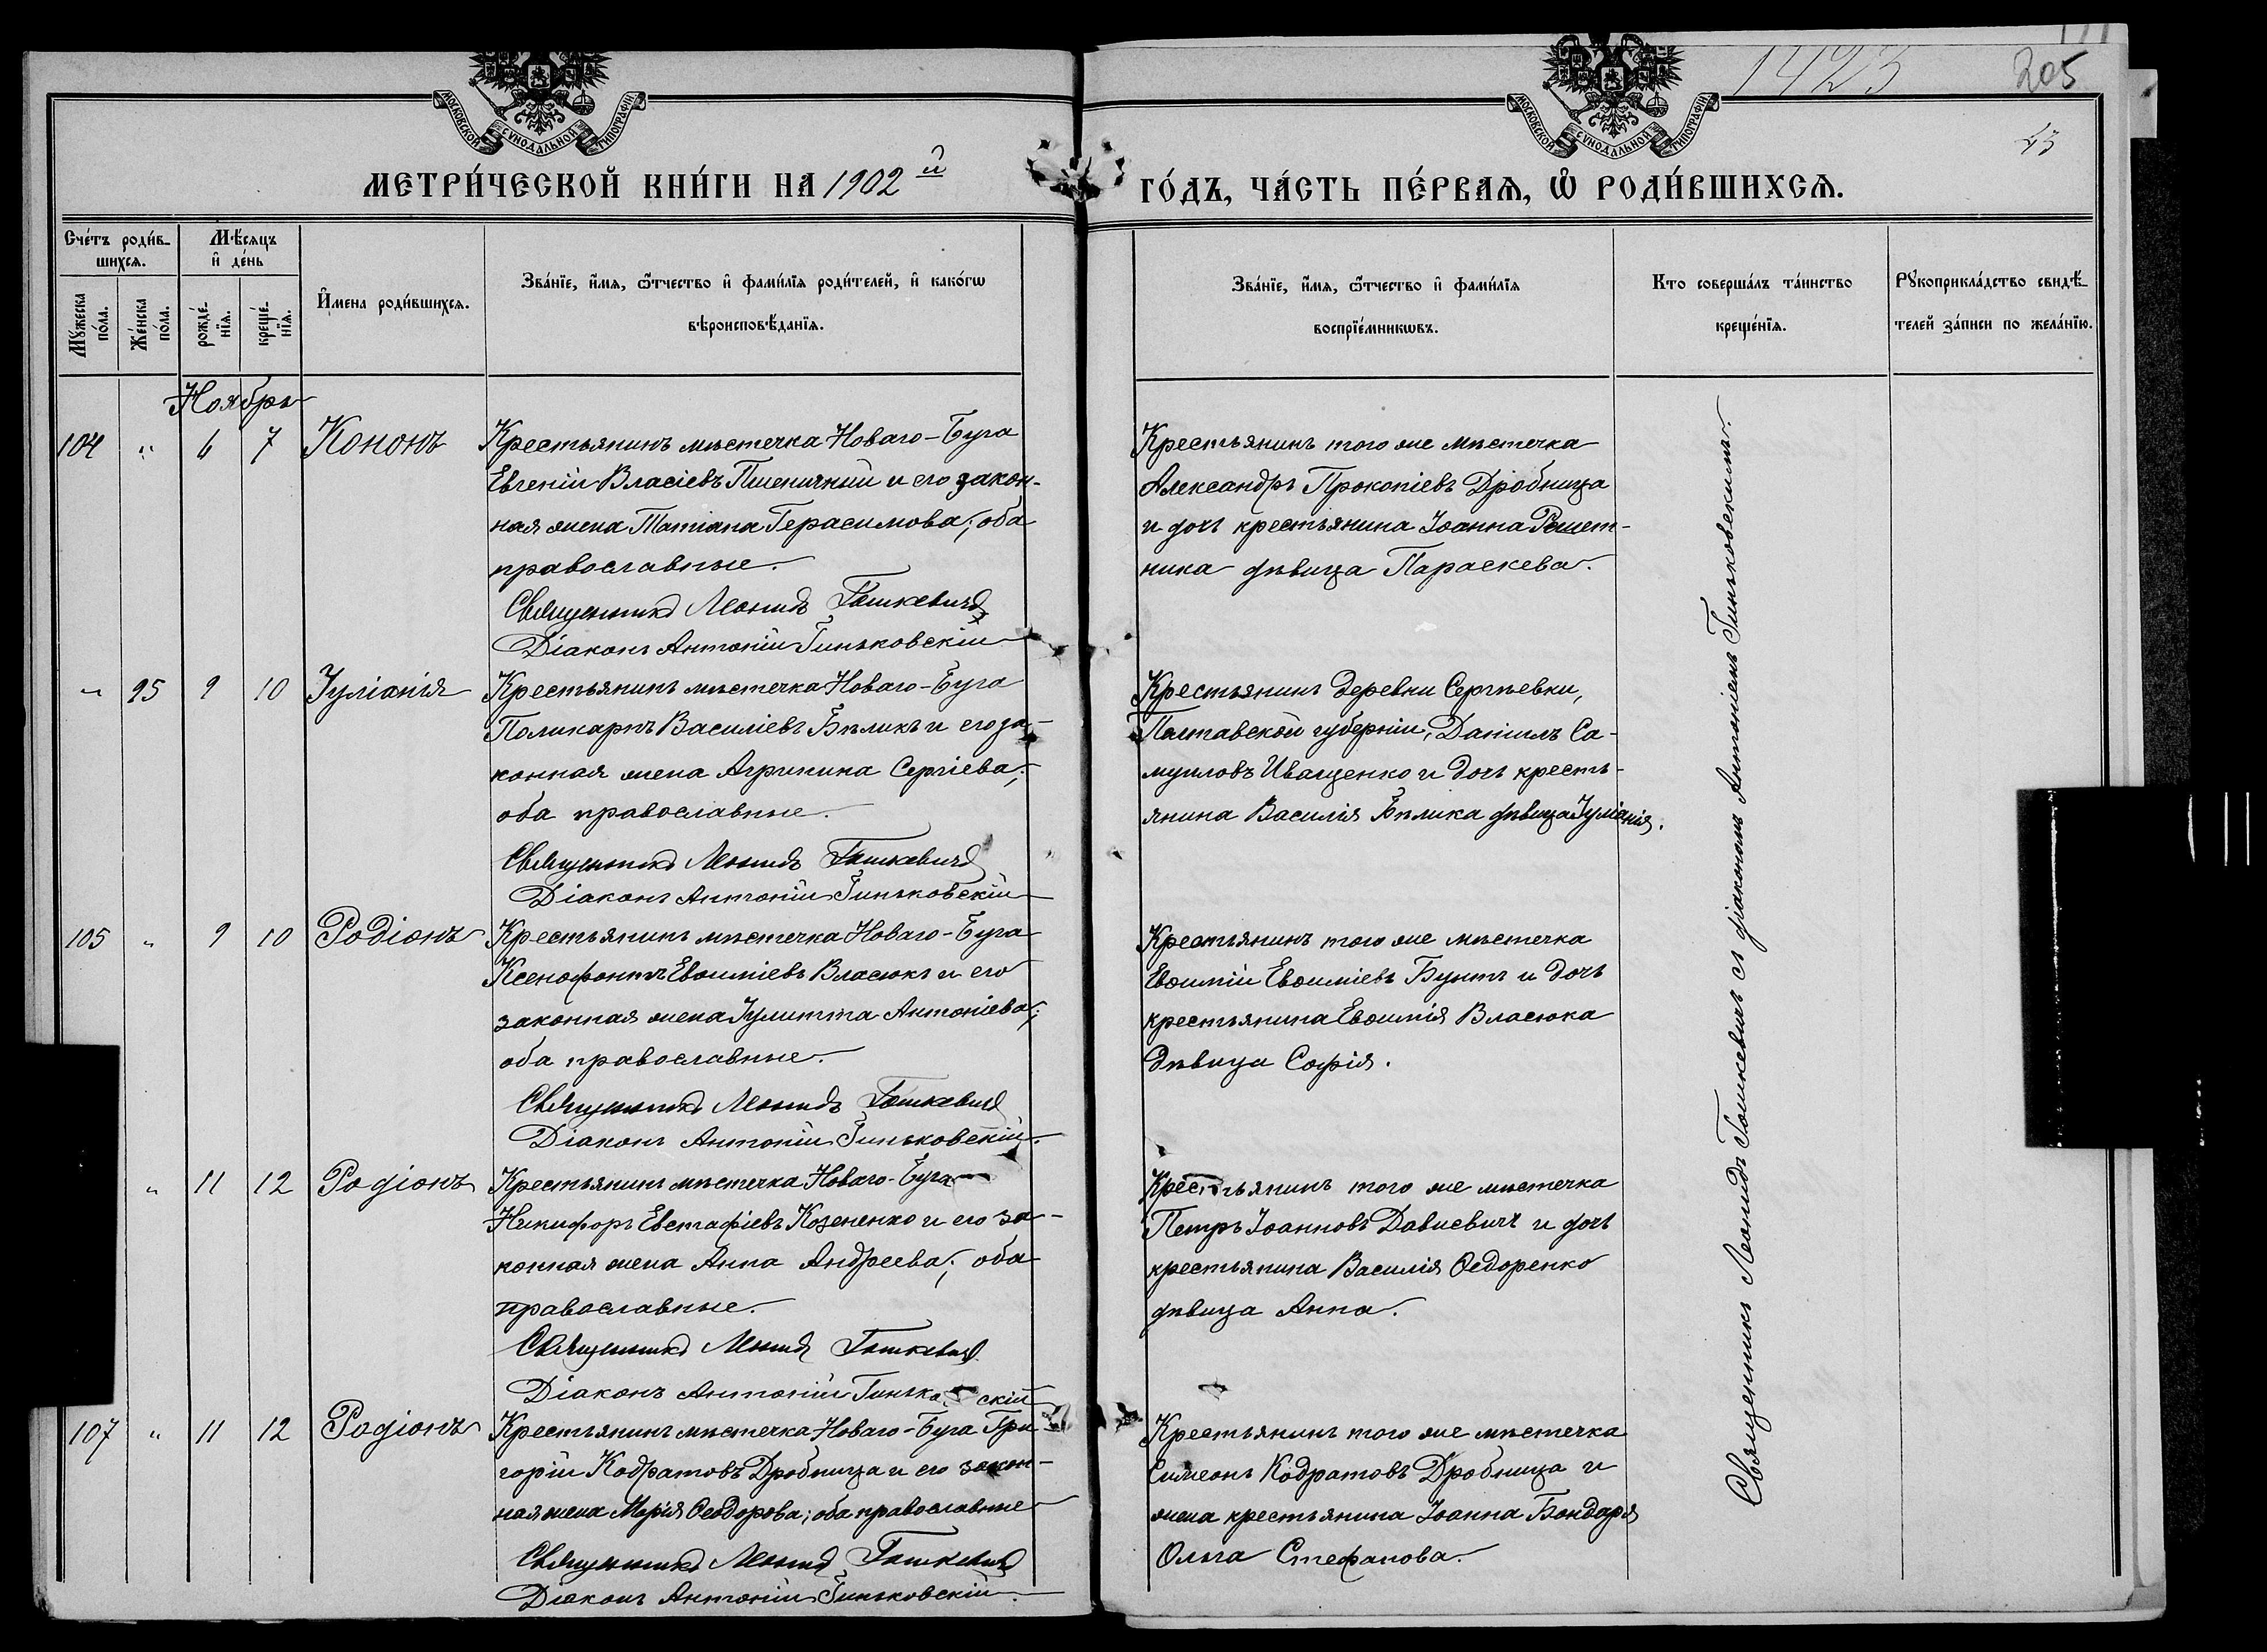 МОСКОВСКОЙ СУНОДАЛЬНОЙ ТИПОГРАФІИ
МОСКОВСКОЙ СУНОДАЛЬНОЙ ТИПОГРАФІИ
1423
205
МЕТРИ́ЧЕСКОЙ КНИ́ГИ НА 1902й
ГО́ДЪ, ЧА́СТЬ ПЕ́РВАѦ, Ѿ РОДИ́ВШИХСѦ.
Сче́тъ роди́в-
шихсѧ.
Мѣ́сѧцъ
и҆ де́нь
Мꙋ́жеска по́ла.
Же́нска по́ла.
рожде́-
нїѧ.
креще́-
нїѧ.
И҆мена роди́вшихсѧ.
Зва́нїе, и҆́мѧ, ѻ҆́тчество и҆ фами́лїѧ роди́телей, и҆ како́гѡ
вѣроисповѣ́данїѧ.
Зва́нїе, и҆́мѧ, ѻ҆́тчество и҆ фами́лїѧ
воспрїе́мникѡвъ.
Кто соверша́лъ та́инство
креще́нїѧ.
Рꙋкоприкла́дство свидѣ́-
телей за́писи по жела́нїю.
Ноябрь
104 " 6 7 Кононъ
Крестьянинъ мѣстечка Новаго-Буга
Евгеній Власіевъ Пшеничный и его закон-
ная жена Татіана Герасимова; оба
православные.
Священникъ Леонидъ Гошкевичъ
Діаконъ Антоній Гиньковскій
Крестьянинъ того же мѣстечка
Александръ Прокопіевъ Дробница
и дочь крестьянина Іоанна Решет-
ника дѣвица Параскева.
" 95 9 10 Іуліанія
Крестьянинъ мѣстечка Новаго-Буга
Поликарпъ Василіевъ Бѣликъ и его за-
конная жена Агрипина Сергіева;
оба православные.
Священникъ Леонидъ Гошкевичъ
Діаконъ Антоній Гиньковскій
Крестьянинъ деревни Сергѣевки,
Полтавской губерніи, Даніилъ Са-
муиловъ Иващенко и дочь кресть-
янина Василія Бѣлика дѣвица Іуліанія.
105 " 9 10 Родіонъ
Крестьянинъ мѣстечка Новаго-Буга
Ксенофонтъ Евѳиміевъ Власюкъ и его
законная жена Іулитта Антоніева;
оба православные.
Священникъ Леонидъ Гошкевичъ
Діаконъ Антоній Гиньковскій.
Крестьянинъ того же мѣстечка
Евѳимій Евѳиміевъ Бунтъ и дочь
крестьянина Евѳимія Власюка
дѣвица Софія.
" 11 12 Родіонъ
Крестьянинъ мѣстечка Новаго-Буга
Никифоръ Евстафіевъ Козененко и его за-
конная жена Анна Андреева; оба
православные.
Священникъ Леонидъ Гошкевичъ
Діаконъ Антоній Гинько скій
Крестьянинъ того же мѣстечка
Петръ Іоанновъ Давиевичъ и дочь
крестьянина Василія Ѳедоренко
дѣвица Анна.
107 " 11 12 Родіонъ
Крестьянинъ мѣстечка Новаго-Буга Гри-
горій Кодратовъ Дробница и его закон-
ная жена Марія Ѳеодорова; оба православные
Священникъ Леонидъ Гошкевичъ
Діаконъ Антоній Гиньковскій.
Крестьянинъ того же мѣстечка
Симеонъ Кодратовъ Дробница и
жена крестьянина Іоанна Бондаря
Ольга Стефанова.
Священникъ Леонидъ Гошкевичъ съ діакономъ Антоніемъ Гиньковскимъ.